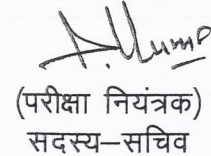 (परीक्षा नियंत्रक)
सदस्य–सचिव